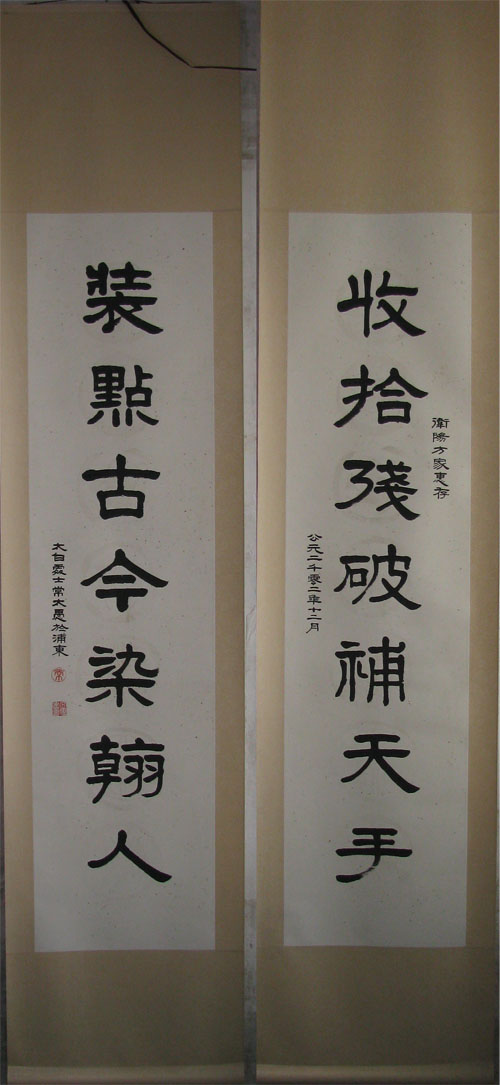 收拾殘破補天手
衡陽方家惠存
公元二千零二年十二月
裝點古今染翰人
太白處士常大愚於浦東